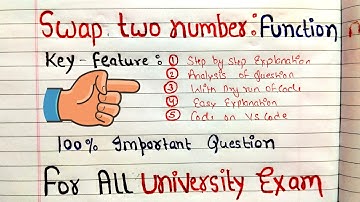 Swap two number: Function
Key-feature:
① Step by step Explanation
② Analysis of Question
③ With Dry run of Code
④ Easy Explanation
⑤ Code on VS Code
100% Important Question
For All University Exam